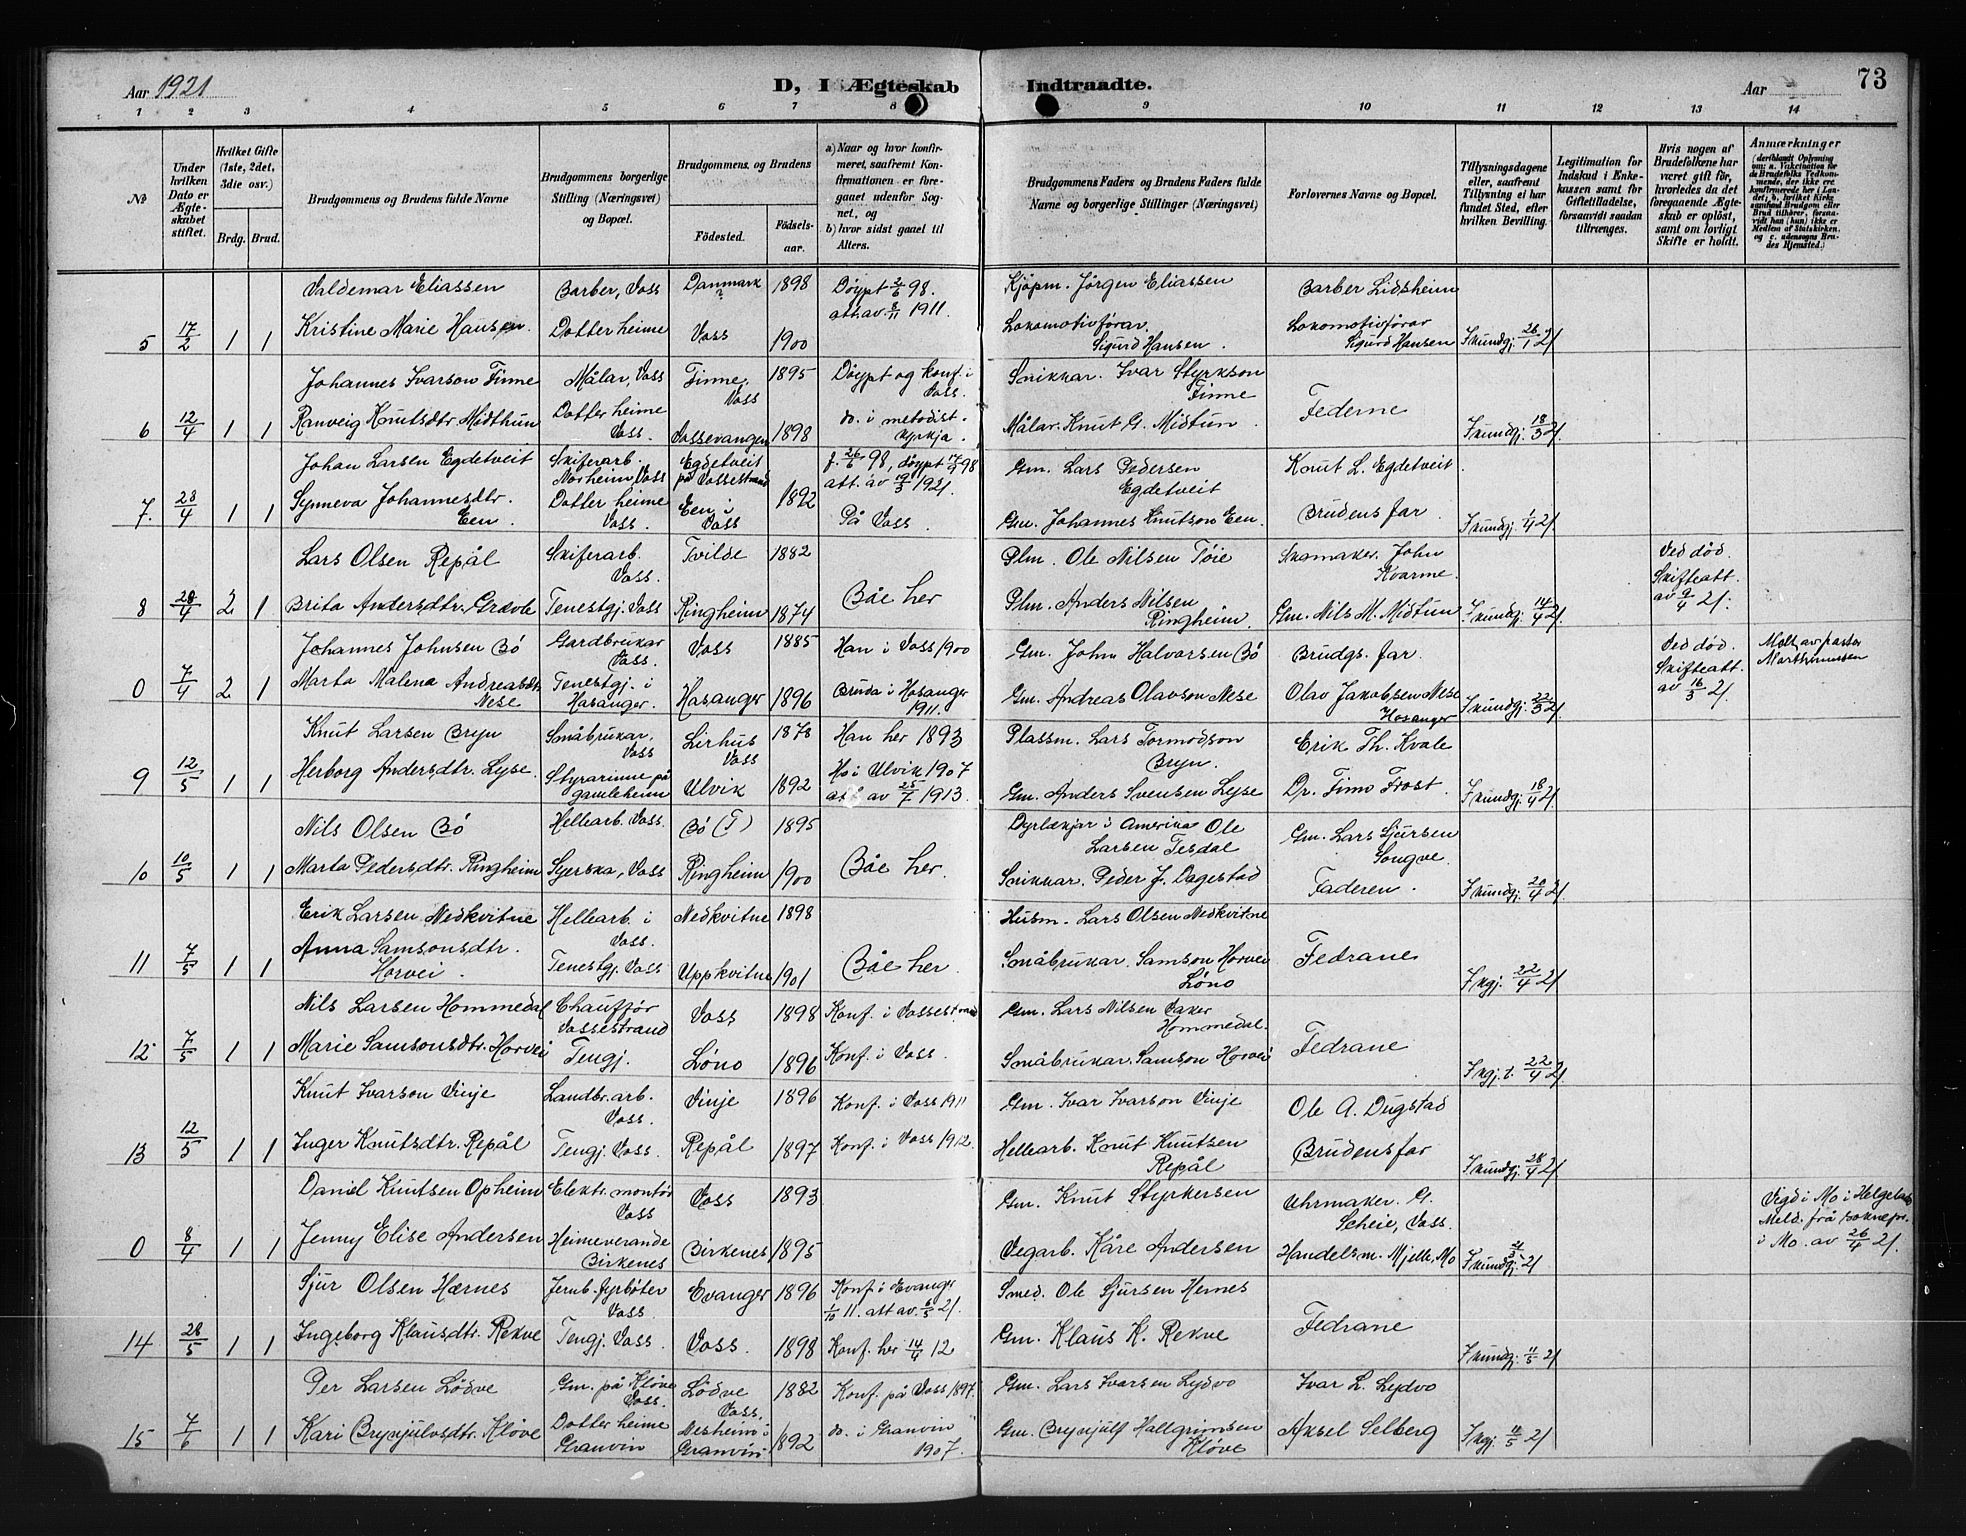 Aar 1921
D, I Ægteskab Indtraadte.
Aar
73
1 2 3 4 5 6 7 8 9 10 11 12 13 14
№
Under hvilken Dato er Ægteskabet stiftet.
Hvilket Gifte (1ste, 2det, 3die osv.)
Brdg. Brud.
Brudgommens og Brudens fulde Navne
Brudgommens borgerlige Stilling (Næringsvei) og Bopæl.
Brudgommens og Brudens
Fødested.
Fødselsaar.
a) Naar og hvor konfirmeret, saafremt Konfirmationen er foregaaet udenfor Sognet, og
b) hvor sidst gaaet til Alters.
Brudgommens Faders og Brudens Faders fulde Navne og borgerlige Stillinger (Næringsvei)
Forlovernes Navne og Bopæl.
Tillysningsdagene eller, saafremt Tillysning ei har fundet Sted, efter hvilken Bevilling.
Legitimation for Indskud i Enkekassen samt for Giftetilladelse, forsaavidt saadan tiltrænges.
Hvis nogen af Brudefolkene har været gift før, hvorledes da det foregaaende Ægteskab er opløst, samt om lovligt Skifte er holdt.
Anmærkninger
Valdemar Eliassen Barber, Voss Danmark 1898 Døypt 2/6 98. att. av 8/11 1911. Kjøpm. Jörgen Eliassen Barber Lidsheim
5 17/2 1 1 Kristine Marie Hansen. Dotter heime Voss 1900 Lokomotivförar Sigurd Hansen. Lokomotivförar Sigurd Hansen F kundgj. 26/1 21
Johannes Ivarson Finne Målar, Voss Finne, Voss 1895 Döypt og konf. i Voss. Snikkar. Ivar Styrkson Finne
6 12/4 1 1 Ranveig Knutsdtr Midthun Dotter heime Voss. Vossevangen 1898 do. i metodistkyrkja. Målar. Knut G. Midtun Federne F kundgj. 18/3 21.
Johan Larsen Egdetveit Skiferarb. Norheim, Voss Egdetveit på Vossestrand f. 26/6 98, döypt 17/7 98 att. av 19/3 1921. Gm. Lars Pedersen Egdetveit Knut L. Egdetveit.
7. 23/4 1 1 Synneva Johannesdtr. Een. Dotter heime Voss. Een i Voss 1892 På Voss. Gm. Johannes Knutson Een. Brudens far F kundgj. 1/4 21
Lars Olsen Repål Skiferarb. Voss. Tvilde 1882 Plm. Ole Nilsen Tøie Skomaker. John Kvarme. Ved død. Skifteatt. av 9/4 21.
8 28/4 2 1 Brita Andersdtr. Grævle Tenestgj. Voss Ringheim 1874 Båe her Plm. Anders Nilsen Ringheim. Gm. Nils M. Midtun F kundgj. 14/4 21
Johannes Johnsen Bö Gardbrukar Voss. Voss 1885 Han i Voss 1900 Gm. John Halvorsen Bö Brudgs. far Ved död. Skifteatt. av 16/3 21. Meld. av pastor
0 7/4 2 1 Marta Malena Andreasdtr Nese Tenestgj. i Hasanger. Hasanger 1896 Bruda i Hosanger 1911. Gm. Andreas Olavson Nese Olav Jakobsen Nese Hosanger F kundgj. 22/3 21.
Knut Larsen Bryn Småbrukar. Voss Lirhus Voss 1878 Han her 1893 Plassm. Lars Tormodson Bryn. Erik Th. Kvale
9 12/5 1 1 Herborg Andersdtr. Lyse. Styrarinne på gamleheim Ulvik 1892 Ho i Ulvik 1907 att av 25/7 1913. Gm. Anders Svensen Lyse Dr. Finn Frost. F kundgj. 18/4 21
Nils Olsen Bö Hellearb. Voss. Bö (T) 1895 Dyrlækjar i Amerika Ole Larsen Tesdal Gm. Lars Sjursen Gongve.
10 10/5 1 1 Marta Pedersdtr. Ringheim Syerska, Voss Ringheim 1900 Båe her. Snikkar. Peder J. Dagestad Faderen. F kundgj. 20/4 21
Erik Larsen Nedkvitne Hellearb. i Voss. Nedkvitne 1898 Husm. Lars Olsen Nedkvitne
11 7/5 1 1 Anna Samsonsdtr. Horvei. Tenestgj. Voss Uppkvitne 1901 Båe her. Småbrukar. Samson Horvei Löno Fedrane F kgj. 22/4 21
Nils Larsen Hommedal Chaufför Vossestrand Voss 1898 Konf. i Vossestrand Gm. Lars Nilsen Vaker Hommedal.
12 7/5 1 1 Marie Samsonsdtr. Horvei Tengj. Löno 1896 Konf. i Voss. Småbrukar. Samson Horvei Fedrane F kgj. t. 22/4 21
Knut Ivarson Vinje Landbr. arb. Voss. Vinje 1896 Konf. i Voss 1911 Gm. Ivar Ivarson Vinje Ole A. Dugstad
13 12/5 1 1 Inger Knutsdtr. Repål Tengj. Voss. Repål 1897 Konf. i Voss 1912. Hellearb. Knut Knutsen Repål Brudens far F kundgj. 28/4 21
Daniel Knutsen Opheim Elektr. montör Voss Voss 1893 Gm. Knut Styrkersen Uhrmaker. G. Scheie, Voss. Vigd i Mo i Helgeland Meld. frå soknepr. i Mo. av 26/4 21.
0 8/4 1 1 Jenny Elise Andersen Heimeverande Birkenes Birkenes 1895 Vegarb. Kåre Andersen Handelsm. Mjelle, Mo F kundgj. 21
Sjur Olsen Hærnes Jernb. fyrböter Voss. Evanger 1896 Konf. i Evanger 1/10 11. att av. 6/5 21. Smed. Ole Sjursen Hernes
14 28/5 1 1 Ingeborg Klausdtr. Rekve Tengj. Voss. Voss. 1898 Konf. her 14/4 12 Gm. Klaus K. Rekve Fedrane F kundgj. 11/5 21
Per Larsen Lödve Gm. på Klöve Voss. Lödve Voss. 1882 Konf. på Voss 1897. Gm. Lars Ivarsen Lydvo Ivar L. Lydvo
15 7/6 1 1 Kari Brynjulvsdtr. Klöve Dotter heime Granvin Nesheim i Granvin 1892 do. i Granvin 1907. Gm. Brynjulf Hallgrimsen Klöve Aksel Selberg F kgj. 18/5 21